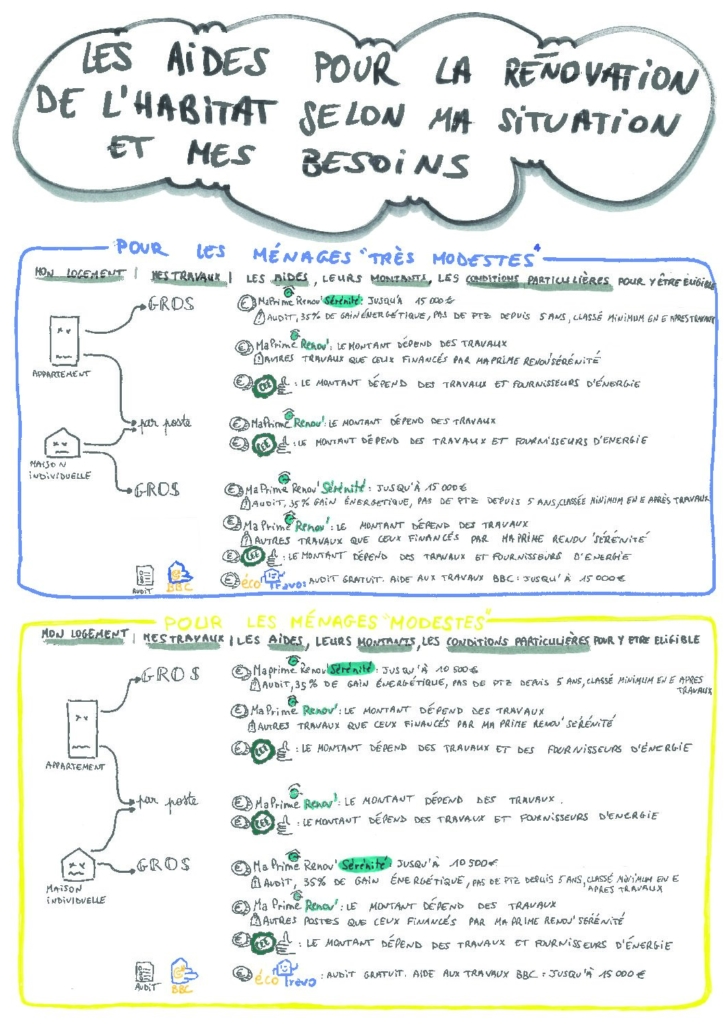 LES AIDES POUR LA RÉNOVATION
DE L'HABITAT SELON MA SITUATION
ET MES BESOINS
POUR LES MÉNAGES "TRÈS MODESTES"
MON LOGEMENT | MES TRAVAUX | LES AIDES, LEURS MONTANTS, LES CONDITIONS PARTICULIÈRES POUR Y ÊTRE ÉLIGIBLE
GROS
€ MaPrime Renov' Sérénité: JUSQU'À 15 000€
! AUDIT, 35% DE GAIN ÉNERGÉTIQUE, PAS DE PTZ DEPUIS 5 ANS, CLASSÉ MINIMUM EN E APRES TRAVAUX
€ MaPrime Renov': LE MONTANT DÉPEND DES TRAVAUX
! AUTRES TRAVAUX QUE CEUX FINANCÉS PAR MAPRIME RENOU'SÉRÉNITÉ
APPARTEMENT
€ CEE : LE MONTANT DÉPEND DES TRAVAUX ET FOURNISSEURS D'ÉNERGIE
par poste
€ MaPrime Renov': LE MONTANT DÉPEND DES TRAVAUX
€ CEE : LE MONTANT DÉPEND DES TRAVAUX ET FOURNISSEURS D'ENERGIE
MAISON
INDIVIDUELLE
GROS
€ MaPrime Renov' Sérénité: JUSQU'À 15 000€
! AUDIT, 35% GAIN ÉNERGETIQUE, PAS DE PTZ DEPUIS 5 ANS, CLASSÉE MINIMUM EN E APRÈS TRAVAUX
€ Ma Prime Renov': LE MONTANT DÉPEND DES TRAVAUX
! AUTRES TRAVAUX QUE CEUX FINANCÉS PAR MA PRIME RENOU 'SÉRÉNITÉ'
€ CEE : LE MONTANT DÉPEND DES TRAVAUX ET FOURNISSEURS D'ENERGIE
AUDIT
BBC
€ éco Trévo: AUDIT GRATUIT. AIDE AUX TRAVAUX BBC: JUSQU'À 15 000€
POUR LES MÉNAGES "MODESTES"
MON LOGEMENT | MES TRAVAUX | LES AIDES, LEURS MONTANTS, LES CONDITIONS PARTICULIÈRES POUR Y ETRE ELIGIBLE
GROS
€ Maprime Renov Sérénité: JUSQU'À 10 500€
! AUDIT, 35% DE GAIN ÉNERGÉTIQUE, PAS DE PTZ DEPUIS 5 ANS, CLASSÉ MINIMUM EN E APRES
TRAVAUX
€ MaPrime Renov': LE MONTANT DÉPEND DES TRAVAUX
! AUTRES TRAVAUX QUE CEUX FINANCÉS PAR MA PRIME RENOU'SÉRÉNITÉ
€ CEE : LE MONTANT DÉPEND DES TRAVAUX ET DES FOURNISSEURS D'ÉNERGIE
APPARTEMENT
par poste
€ MaPrime Renov': LE MONTANT DÉPEND DES TRAVAUX.
€ CEE : LE MONTANT DÉPEND DES TRAVAUX ET FOURNISSEURS D'ENERGIE
GROS
€ Ma Prime Renov' Sérénité: JUSQU'À 10 500€
! AUDIT, 35% DE GAIN ÉNERGÉTIQUE, PAS DE PTZ DEPUIS 5 ANS, CLASSÉ MINIMUM EN E
APRES TRAVAUX
MAISON
INDIVIDUELLE
€ Ma Prime Renov': LE MONTANT DÉPEND DES TRAVAUX
! AUTRES POSTES QUE CEUX FINANCÉS PAR MA PRIME RENOU'SÉRÉNITÉ
€ CEE : LE MONTANT DÉPEND DES TRAVAUX ET FOURNISSEURS D'ÉNERGIE
AUDIT
BBC
€ éco Trévo : AUDIT GRATUIT. AIDE AUX TRAVAUX BBC: JUSQU'À 15 000€